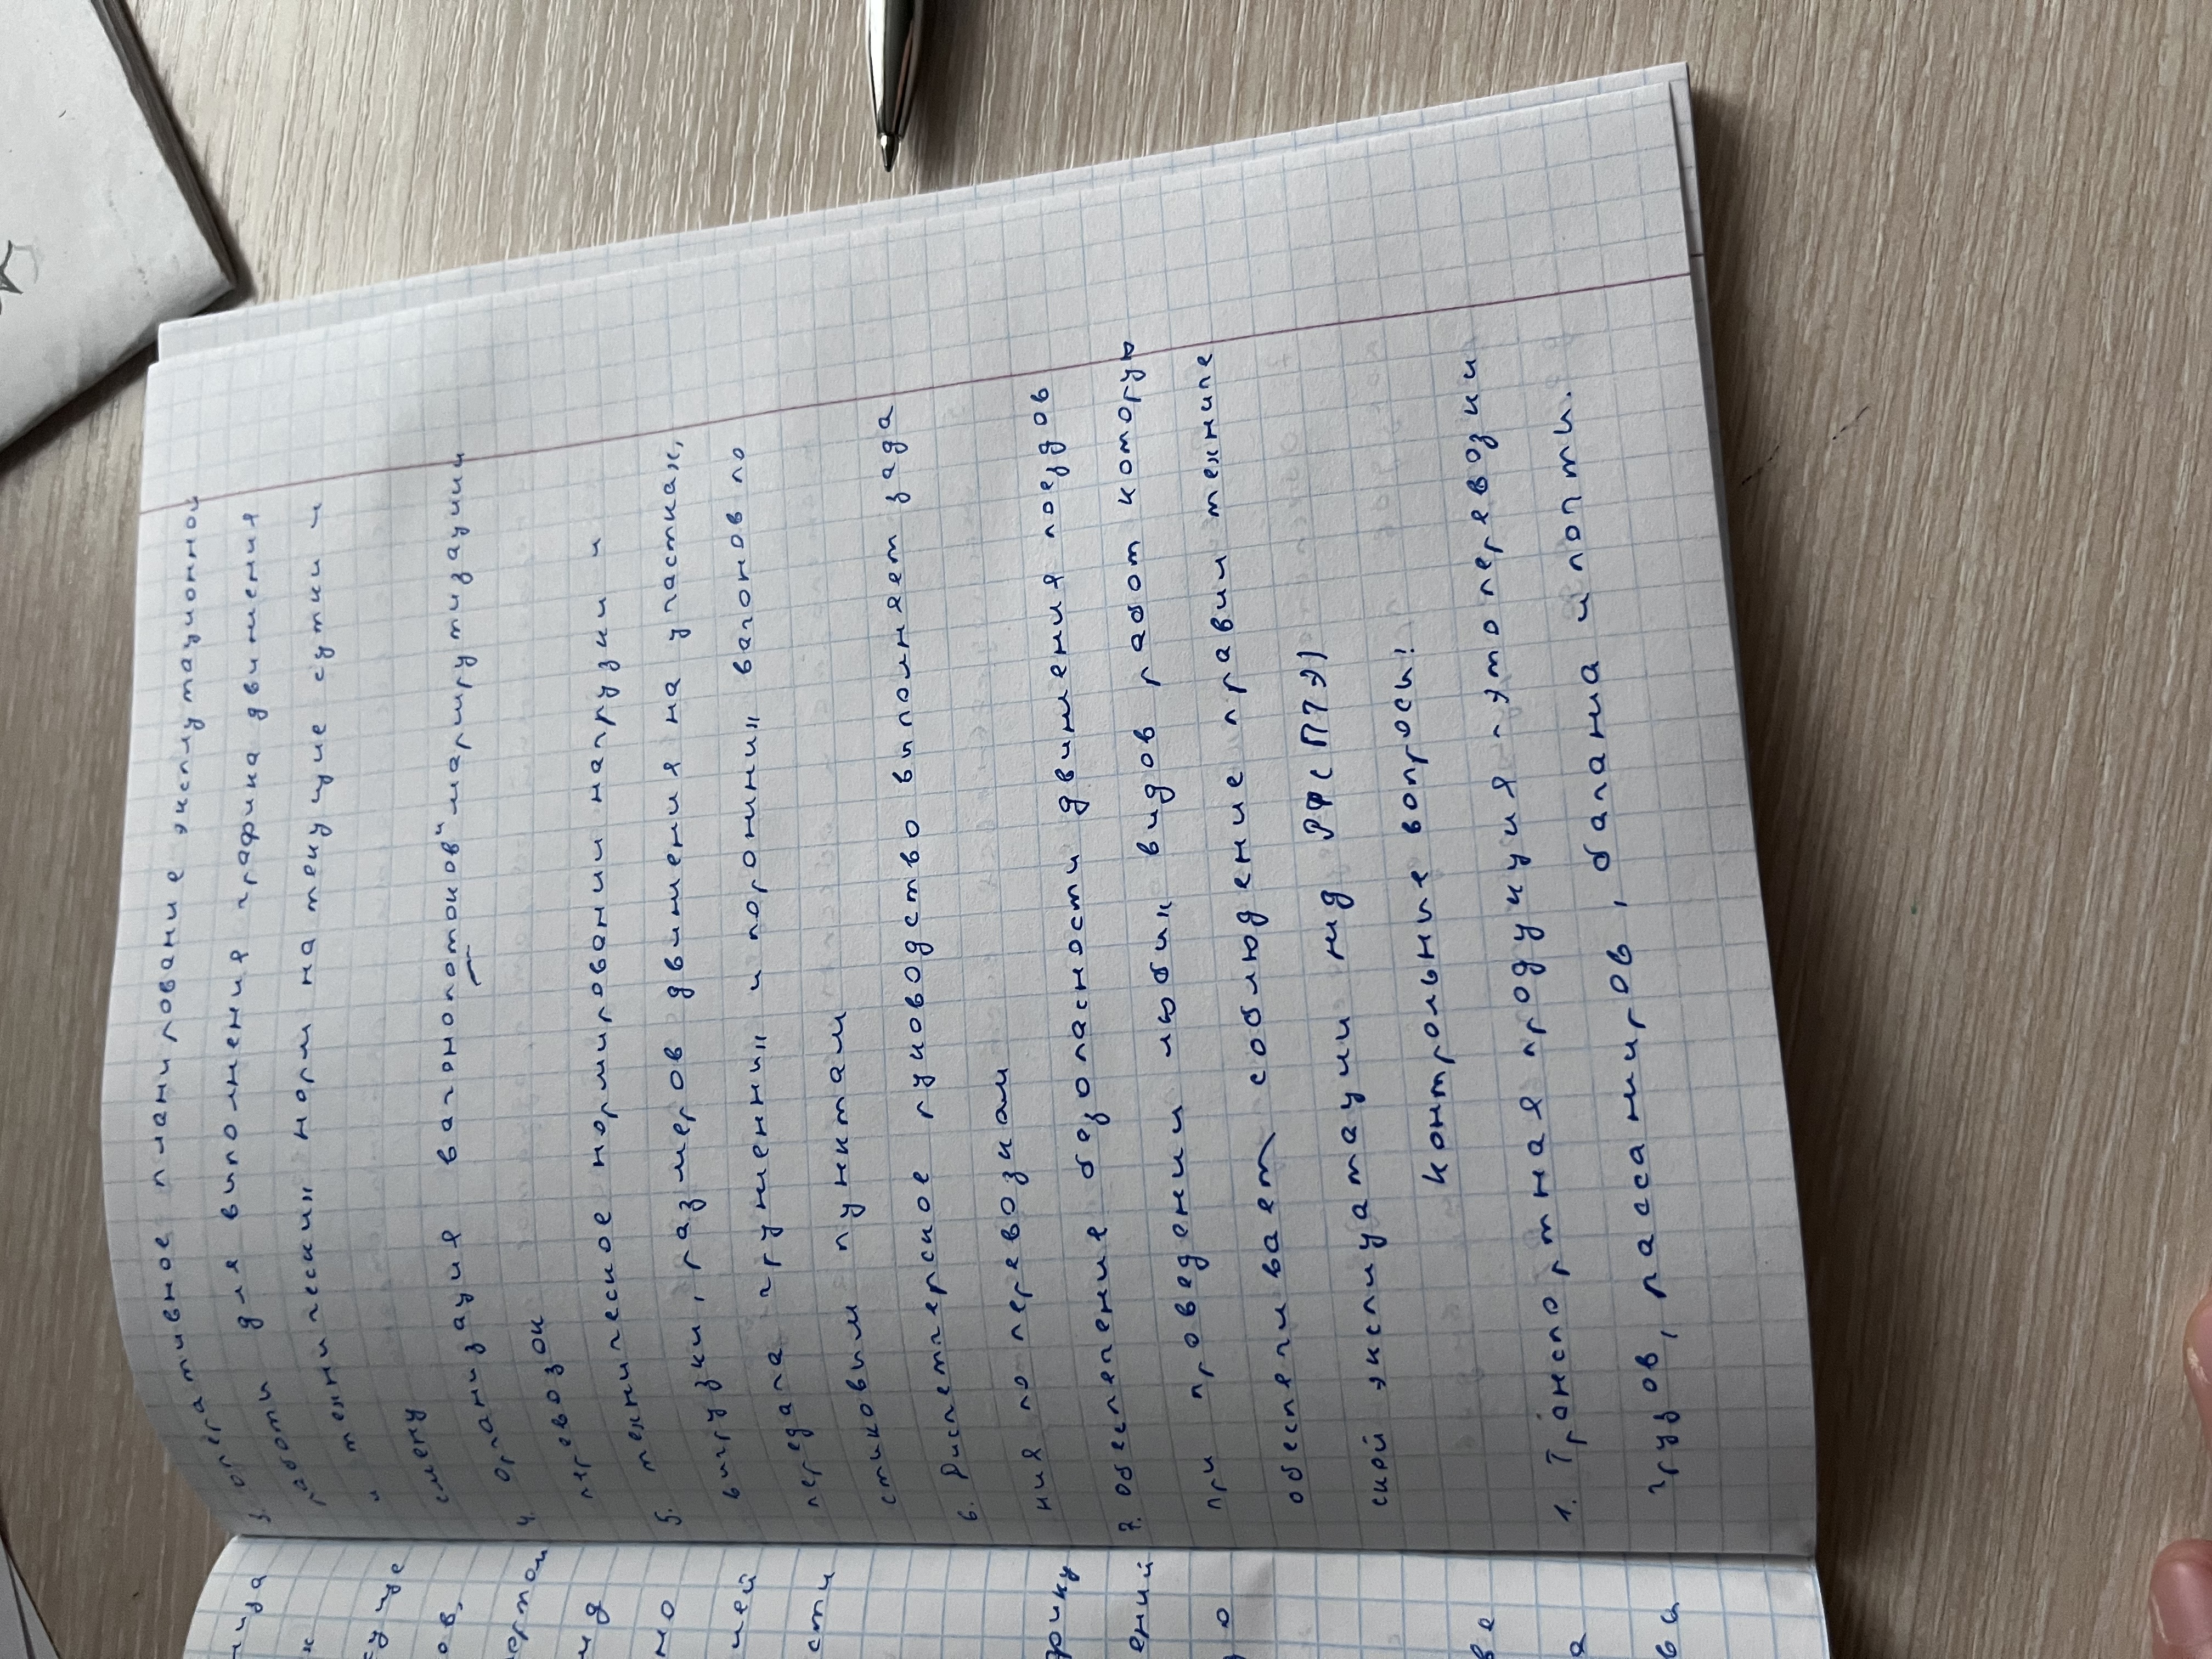 3. оперативное планирование эксплутационной
работы для выполнения графика движения
и технических норм на текущие сутки и
смену
4. организация вагонопотоков и маршрутизации
перевозок
5. техническое нормировании нагрузки и
выгрузки, размеров движения на участках,
передача груженных и порожних вагонов по
стиковым пунктам
6. Диспетчерское руководство выполняет зада
ния по перевозкам
7. обеспечение безопасности движения поездов
при проведении любых видов работ которую
обеспечивает соблюдение правил техниче
ской эксплуатации жд РФ (ПТЭ)
Контрольные вопросы!
1. Транспортная продукция - это перевозки
грузов, пассажиров, багажа и почты.
ница
х
суще
ов,
жд
но
ией
сти
ений
ве
а